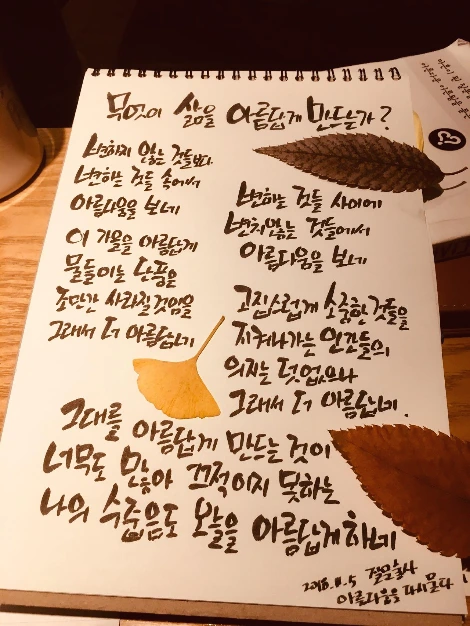 무엇이 삶을 아름답게 만드는가?
변하지 않는 것들보다
변하는 것들 속에서
아름다움을 보네
이 가을을 아름답게
물들이는 단풍을
조만간 사라질것임을
그래서 더 아름답네
변하는 것들 사이에
변치않는 것들에서
아름다움을 보네
고집스럽게 소중한것들을
지켜나가는 인간들의
의지는 덧없으나
그래서 더 아름답네.
그대를 아름답게 만드는 것이
너무도 많아 끄적이지 못하는
나의 수줍음도 오늘을 아름답게하네
2018.11.5
아름다움을 다시묻다